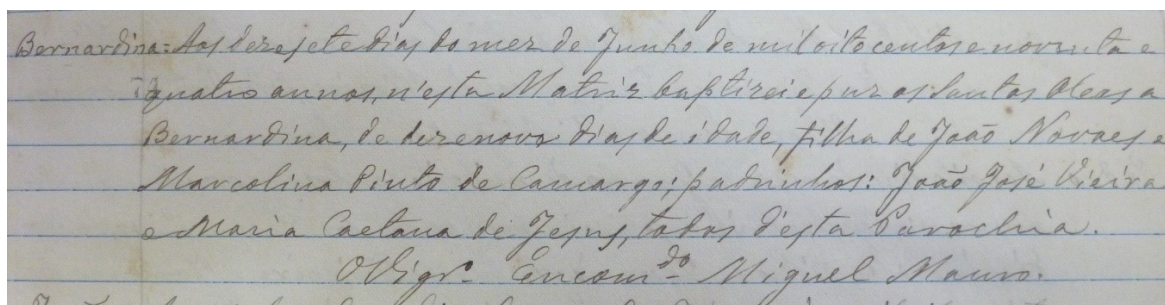 Bernardina = Aos dezesete dias do mez de Junho de mil oitocentos e noventa e
quatro annos, n'esta Matriz baptizei e puz os Santos Oleos a
Bernardina, de dezenove dias de idade, filha de João Novaes e
Marcolina Pinto de Camargo; padrinhos: João José Vieira
e Maria Caetana de Jesus, todos d'esta Parochia.
O Vigrº Encomdo Miguel Mauro.